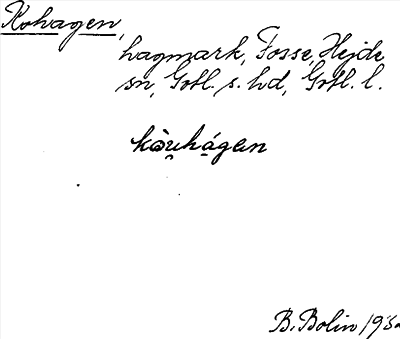 Kohagen,
hagmark, Fosse, Hejde
sn, Gotl. s. hd, Gotl. l.
kàu̯há̤gen
B. Bolin